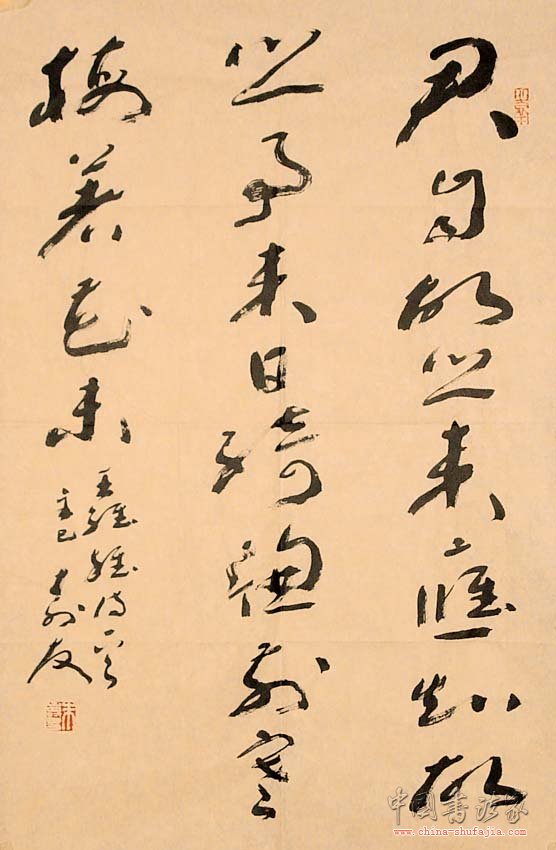 君自故鄉來應知故
鄉事來日綺窗前寒
梅著花未
王維雜詩一首
辛巳 友
中国书法家
www.china-shufajia.com